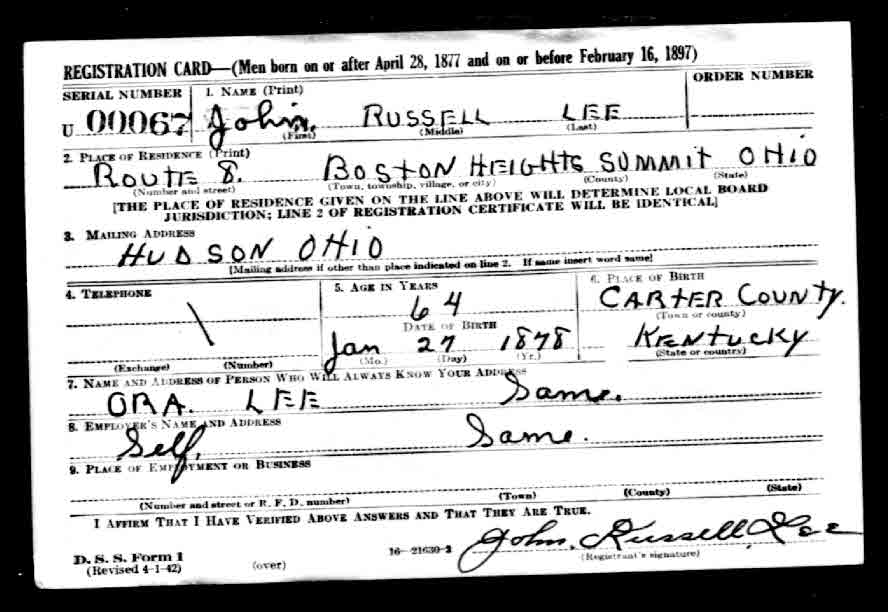 REGISTRATION CARD—(Men born on or after April 28, 1877 and on or before February 16, 1897)
SERIAL NUMBER 1. NAME (Print) ORDER NUMBER
U 00067 John RUSSELL LEE
(First) (Middle) (Last)
2. PLACE OF RESIDENCE (Print)
ROUTE 8. BOSTON HEIGHTS SUMMIT OHIO
(Number and street) (Town, township, village, or city) (County) (State)
[THE PLACE OF RESIDENCE GIVEN ON THE LINE ABOVE WILL DETERMINE LOCAL BOARD
JURISDICTION; LINE 2 OF REGISTRATION CERTIFICATE WILL BE IDENTICAL]
3. MAILING ADDRESS
HUDSON OHIO
[Mailing address if other than place indicated on line 2. If same insert word same]
4. TELEPHONE 5. AGE IN YEARS 6. PLACE OF BIRTH
64 CARTER COUNTY.
(Town or county)
DATE OF BIRTH
Jan 27 1878 KENTUCKY
(Exchange) (Number) (Mo.) (Day) (Yr.) (State or country)
7. NAME AND ADDRESS OF PERSON WHO WILL ALWAYS KNOW YOUR ADDRESS
ORA. LEE Same.
8. EMPLOYER'S NAME AND ADDRESS
Self, Same.
9. PLACE OF EMPLOYMENT OR BUSINESS
(Number and street or R. F. D. number) (Town) (County) (State)
I AFFIRM THAT I HAVE VERIFIED ABOVE ANSWERS AND THAT THEY ARE TRUE.
John, Russell Lee
D. S. S. Form 1 16—21630-2 (Registrant's signature)
(Revised 4-1-42) (over)